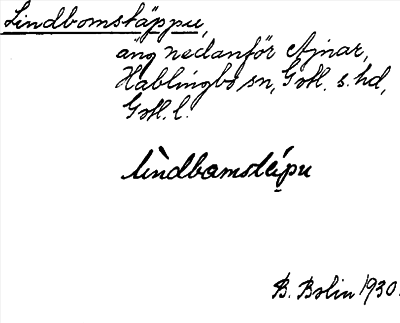 Lindbomstäppu,
äng nedanför Ajnar,
Hablingbo sn, Gotl. s. hd,
Gotl. l.
lìndbomstäpu
B. Bolin 1930.